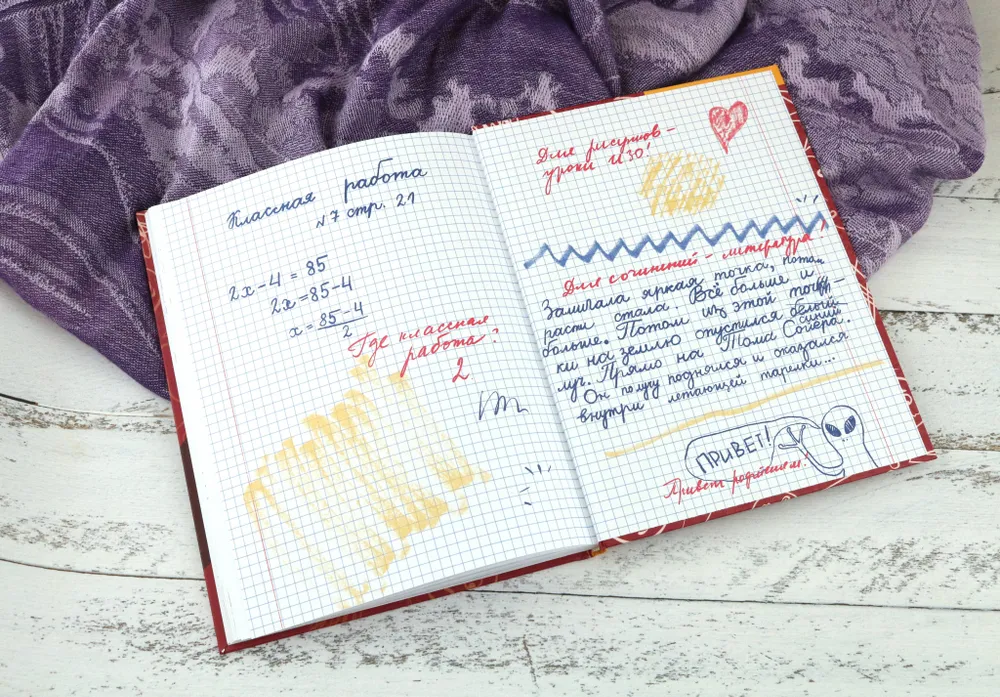 Классная работа
№7 стр. 21
2x-4=85
2x=85-4
x=85-4
2
Где классная
работа?
2
Для рисунков-
уроки ИЗО!
Для сочинений-литература!
Замигала яркая точка, потом
расти стала. Всё больше и
больше. Потом из этой точки
ки на землю опустился белый
синий
луч. Прямо на Тома Сойера.
Он полуу поднялся и оказался
внутри летающей тарелки...
ПРИВЕТ!
Привет родителям!